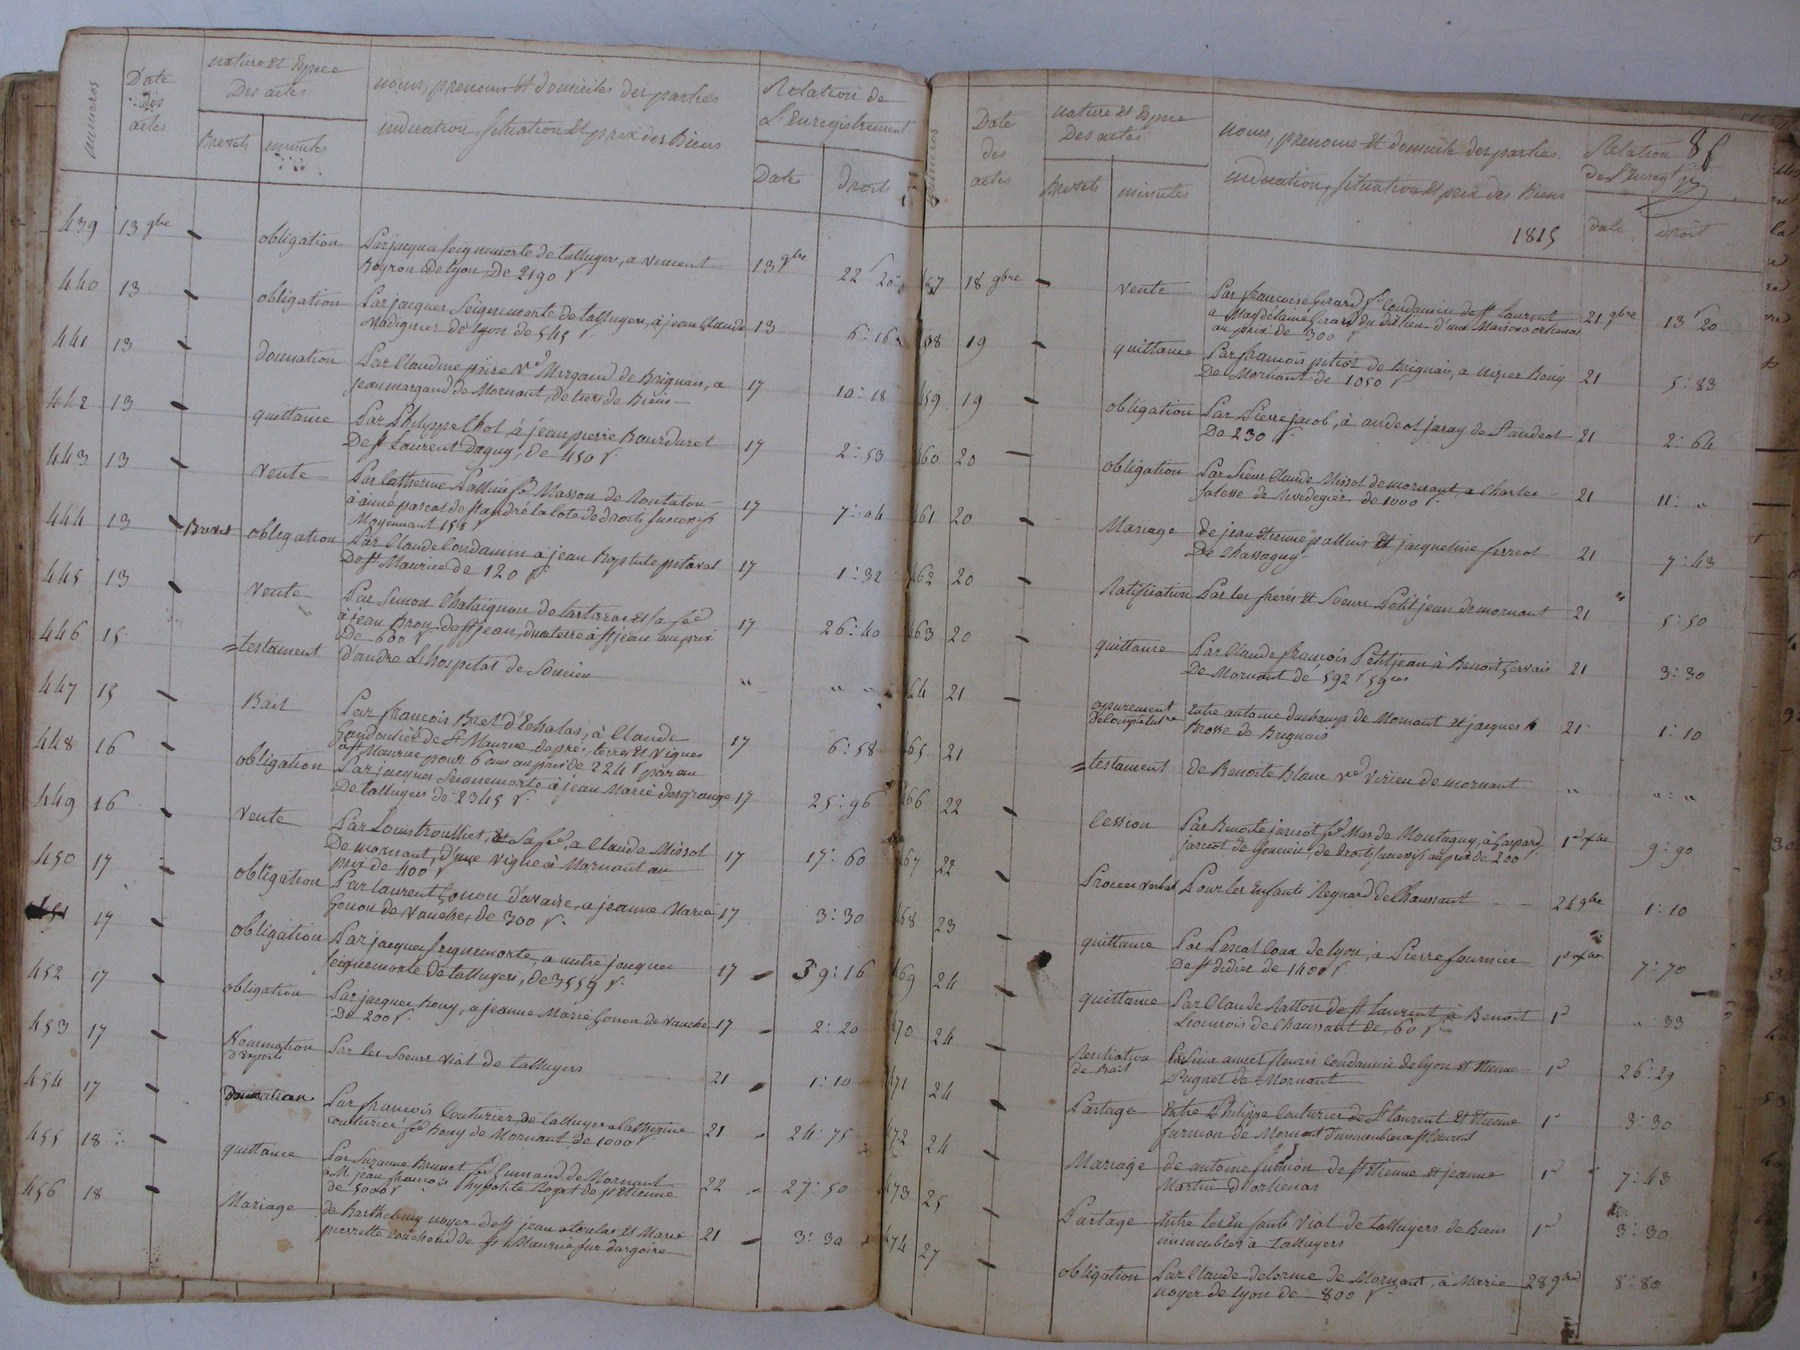 numeros
Date
des
actes
nature et Espece
Des actes
Brevets minutes
noms, prenoms et domiciles des parties
indication, situation et prix des Biens
Relation de
L'Enregistrement
Date Droits
439 13 9bre obligation Par jacques seignemorte de talluyers, a vincent 13 9bre 22 f 20
Boyron de lyon de 2190 f
440 13 obligation Par jacques Seignemorte de talluyers, à jean Claude 13 6:16
Madignier de lyon de 545 f
441 13 donnation Par Claudine paire Ve Margand de Brignais, a 17 10:18
jean margand de Mornant, de tiers de Biens
442 13 quittance Par Philippe Chol à jean pierre Bourdaret 17 2:53
De st Laurent dagny, de 450 f
443 13 vente Par Catherine Palluis fe Masson de Rontalon 17 7:04
à aimé pascal de st andré la cote de droits successifs
Moyennant 155 f
444 13 Brevet obligation Par Claude Condamin a jean Baptiste pitaval 17 1:32
De st Maurice de 120 f
445 13 vente Par Simon Chataignon de tartaras et sa fe 17 26:40
à jean Bron de st jean, d'une terre à st jean au prix
De 600 f
446 15 testament d'andre Lhospital de Soucieu " " "
447 15 Bail Par françois Bret d'Echalas, à Claude 17 6:58
Gandoulier de st Maurice de pré, terres et vignes
à st Maurice pour 6 ans au prix de 224 f par an
448 16 obligation Par jacques Seignemorte à jean Marie desgrange 17 25:96
De talluyers de 2345 f
449 16 vente Par Louis trouilliet, et sa fe, a Claude Missol 17 17:60
De mornant, d'une vigne à Mornant au
prix de 400 f
450 17 obligation Par laurent Gonon d'avaize, a jeanne Marie 17 3:30
Gonon de Vauche, de 300 f
451 17 obligation Par jacques seignemorte, a autre jacques 17 39:16
seignemorte de talluyers, de 3559 f
452 17 obligation Par jacques Bouy, a jeanne Marie Gonon de Vauche 17 2:20
De 200 f
453 17 Nommination Par les Soeurs Vial de talluyers 21 1:10
D'Experts
454 17 Donnation Par françois Couturier de talluyers a Catherine 21 24:75
couturier fe Bouy de Mornant de 1000 f
455 18 quittance Par Suzanne Brunot fe Guinand de Mornant 22 27:50
à M. jean françois hypolite Royet de st Etienne
de 5000 f
456 18 Mariage de Barthelemy noyer de st jean a toulas et Marie 21 3:30
pierrette couchoud de st Maurice sur dargoire
numeros
Date
des
actes
nature et Espece
Des actes
Brevets minutes
noms, prenoms et domicile des parties
indication, situation et prix des Biens
1815
Relation
De l'Enregt
date droit
457 18 9bre vente Par françoise Girard fe Condamin de st Laurent 21 9bre 13 f 20
a Magdelaine Girard du dit lieu d'une Maison a orlienas
au prix de 300 f
458 19 quittance Par françois pitiot de Brignais, a Bouy 21 5:83
De Mornant de 1050 f
459 19 obligation Par Pierre jacob, à andeol jaray de st andeol 21 2:64
De 230 f
460 20 obligation Par Sieur Claude Missol de mornant, a Charles 21 11: "
jalesse de Rivedegier de 1000 f
461 20 Mariage de jean Etienne palluis et jacqueline ferreol 21 7:43
De Chassagny
462 20 Ratification Par les freres et Soeurs Petitjean de mornant 21 5:50
463 20 quittance Par Claude françois Petitjean à Benoit Gervais 21 3:30
De Mornant de 592 f 59 ces
464 21 apurement Entre antoine duchamp de Mornant et jacques 21 1:10
de Compte tutre Brosse de Brignais
465 21 testament de Benoite Blanc ve Verieu de mornant " " : "
466 22 Cession Par Benoite jaricot, fe Mas de Montagny, à Gaspard 1er xbre 9:90
jaricot de Soucieu, de droits successifs au prix de 200 f
467 22 Procès verbal Pour les Enfants Reynard de Chaussant 24 9bre 1:10
468 23 quittance Par Pascal Coux de lyon, à Pierre fournier 1er xbre 7:70
De st didier de 1400 f
469 24 quittance Par Claude Ratton de st Laurent à Benoit 1er " : 33
Lionnois de Chaussant de 60 f
470 24 Resiliation Par Sieur annet fleuris Condamin de lyon et Etienne 1er 26:29
de Bail Pugnet de Mornant
471 24 Partage Entre Philippe Couturier de st Laurent et Etienne 1er 3:30
furnion de Mornant d'immeubles a st Laurent
472 24 Mariage de antoine furnion de st Etienne et jeanne 1er 7:43
Martin d'orlienas
473 25 Partage Entre les Enfants Vial de talluyers de Biens 1er 3:30
immeubles à talluyers
474 27 obligation Par Claude delorme de Mornant, à Marie 28 9bre 8:80
noyer de lyon de 800 f